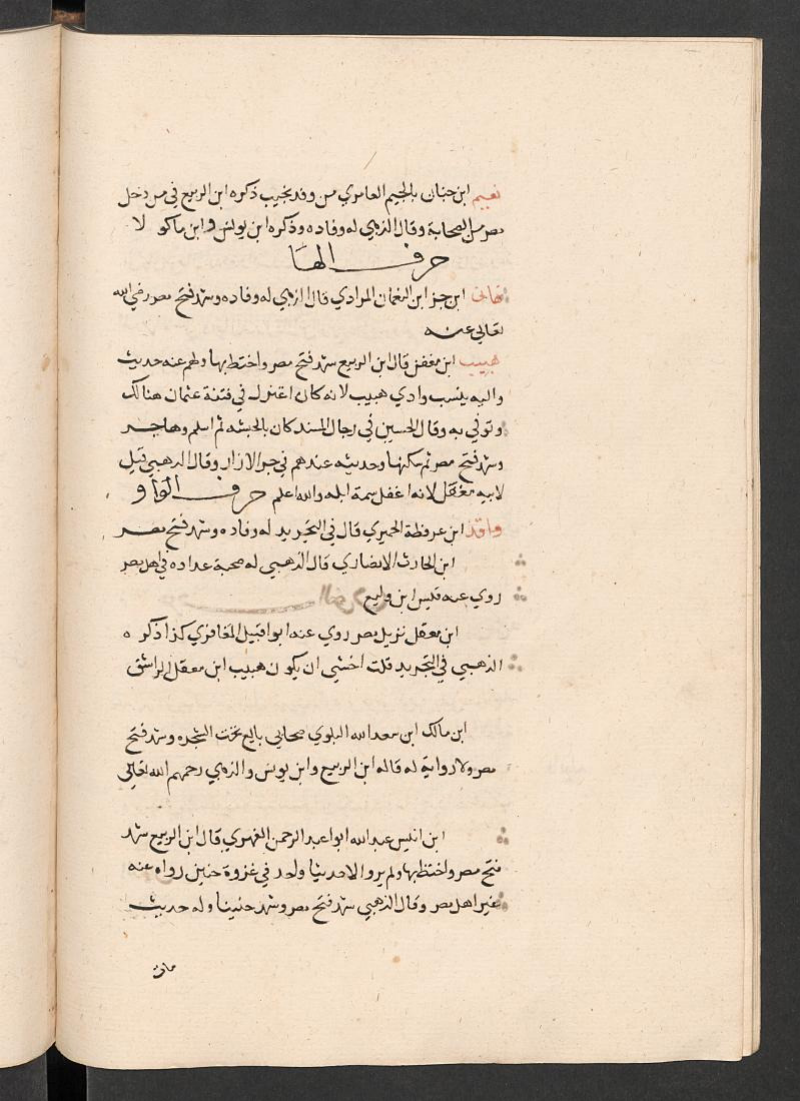 نعيم ابن جنان بالجيم العامري من وفد تجيب ذكره ابن الربيع في من دخل
مصر من الصحابة وقال الذهبي له وفاده وذكره ابن يونس وابن ماكو لا
حرف الها
هاني ابن جز ابن النعمان المرادي قال الذهبي له وفاده وشهد فتح مصر رضي الله
تعالي عنه
هبيب ابن مغفل قال ابن الربيع شهد فتح مصر واختط بها ولهم عنه حديث
واليه ينسب وادي هبيب لانه كان اعتزل في فتنة عثمان هنالك
وتوفي به وقال الحسين في رجال المسند كان بالحبشه ثم اسلم وهاجر
وشهد فتح مصر ثم سكنها وحديثه عندهم في جر الازار وقال الذهبي قيل
لابيه مغفل لانه اغفل سمة ابله والله اعلم حرف الواو
واقد ابن عرفطة الحميري قال في التجريد له وفاده وشهد فتح مصر
ابن الحارث الانصاري قال الذهبي له صحبة عداده في اهل مصر
روي عنه قيس ابن رافع
ابن معقل نزيل مصر روي عنه ابو اقبيل المغافري كذا ذكر ه
الذهبي في التجريد قلت اخشي ان يكون هبيب ابن معقل
ابن مالك ابن سعد الله البلوي صحابي بايع تحت الشجره وشهد فتح
مصر ولا رواية له قاله ابن الربيع وابن يونس والذهبي رحمهم الله تعالي
ابن انيس عبد الله ابوا عبد الرحمن الفهري قال ابن الربيع شهد
فتح مصر واختط بها ولم يرو الا حديثا واحد في غزوة حنين رواه عنه
غير اهل مصر وقال الذهبي شهد فتح مصر وشهد حنينا وله حديث